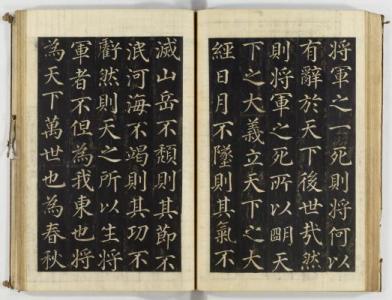 將軍之一死則將何以
有辭於天下後世㢤然
則將軍之死所以明天
下之大義立天下之大
經日月不墜則其氣不
滅山岳不頹則其節不
泯河海不竭則其功不
虧然則天之所以生將
軍者不但為我東也將
為天下萬世也為春秋